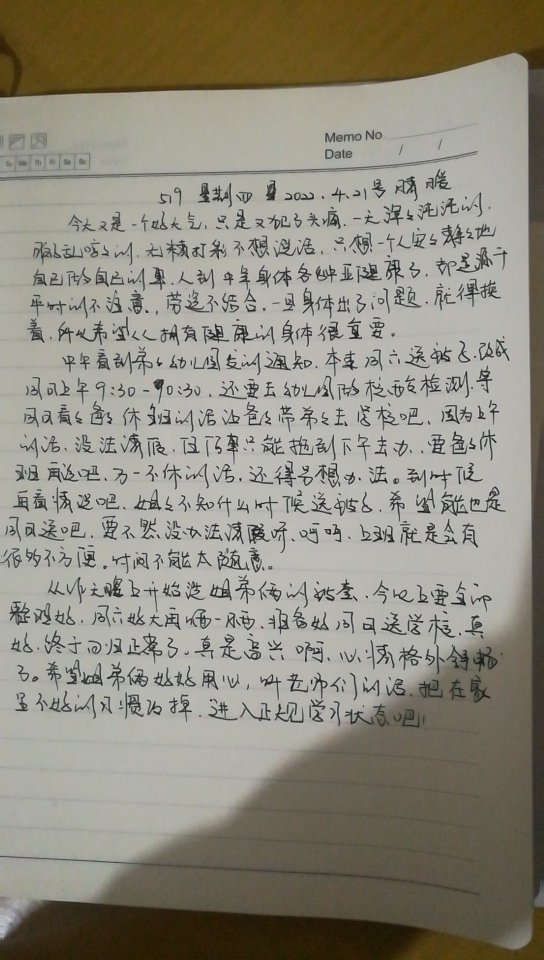 Memo No.
Date / /
Tu We Th Fr Sa Su
519 星期四 2022.4.21号 晴 暖
今天又是一个好天气,只是又犯了头痛,一天浑浑沌沌的,
无精打彩不想说话,只想一个人安安静静地
自己做自己的事,人到中年身体各种亚健康了,都是源于
平时的不注意,劳逸不结合,一旦身体出了问题,就得挨
着,所以希望人人拥有健康的身体很重要。
中午看到弟弟幼儿园发的通知,本来周六送被子,改成
周日上午9:30-10:30,还要去幼儿园做核酸检测,等
周日看看爸爸休班的话让爸爸带弟弟去学校吧,因为上午
的话,没法请假,这下事只能拖到下午去办,要爸爸休
班再送吧,万一不休的话,还得另想办法。到时候
再看情况吧,姐姐不知什么时候送被子,希望能也是
周日送吧,要不然没办法请假呀,呵呵,上班就是会有
很多不方便。时间不能太随意。
从昨天晚上开始洗姐弟俩的被套,今晚上要全部
整理好,周六好天再晒一晒,准备好周日送学校,真
好,终于回归正常了。真是高兴啊,心情格外舒畅
了。希望姐弟俩好好用心,听老师们的话,把在家
里不好的习惯改掉,进入正规学习状态吧!